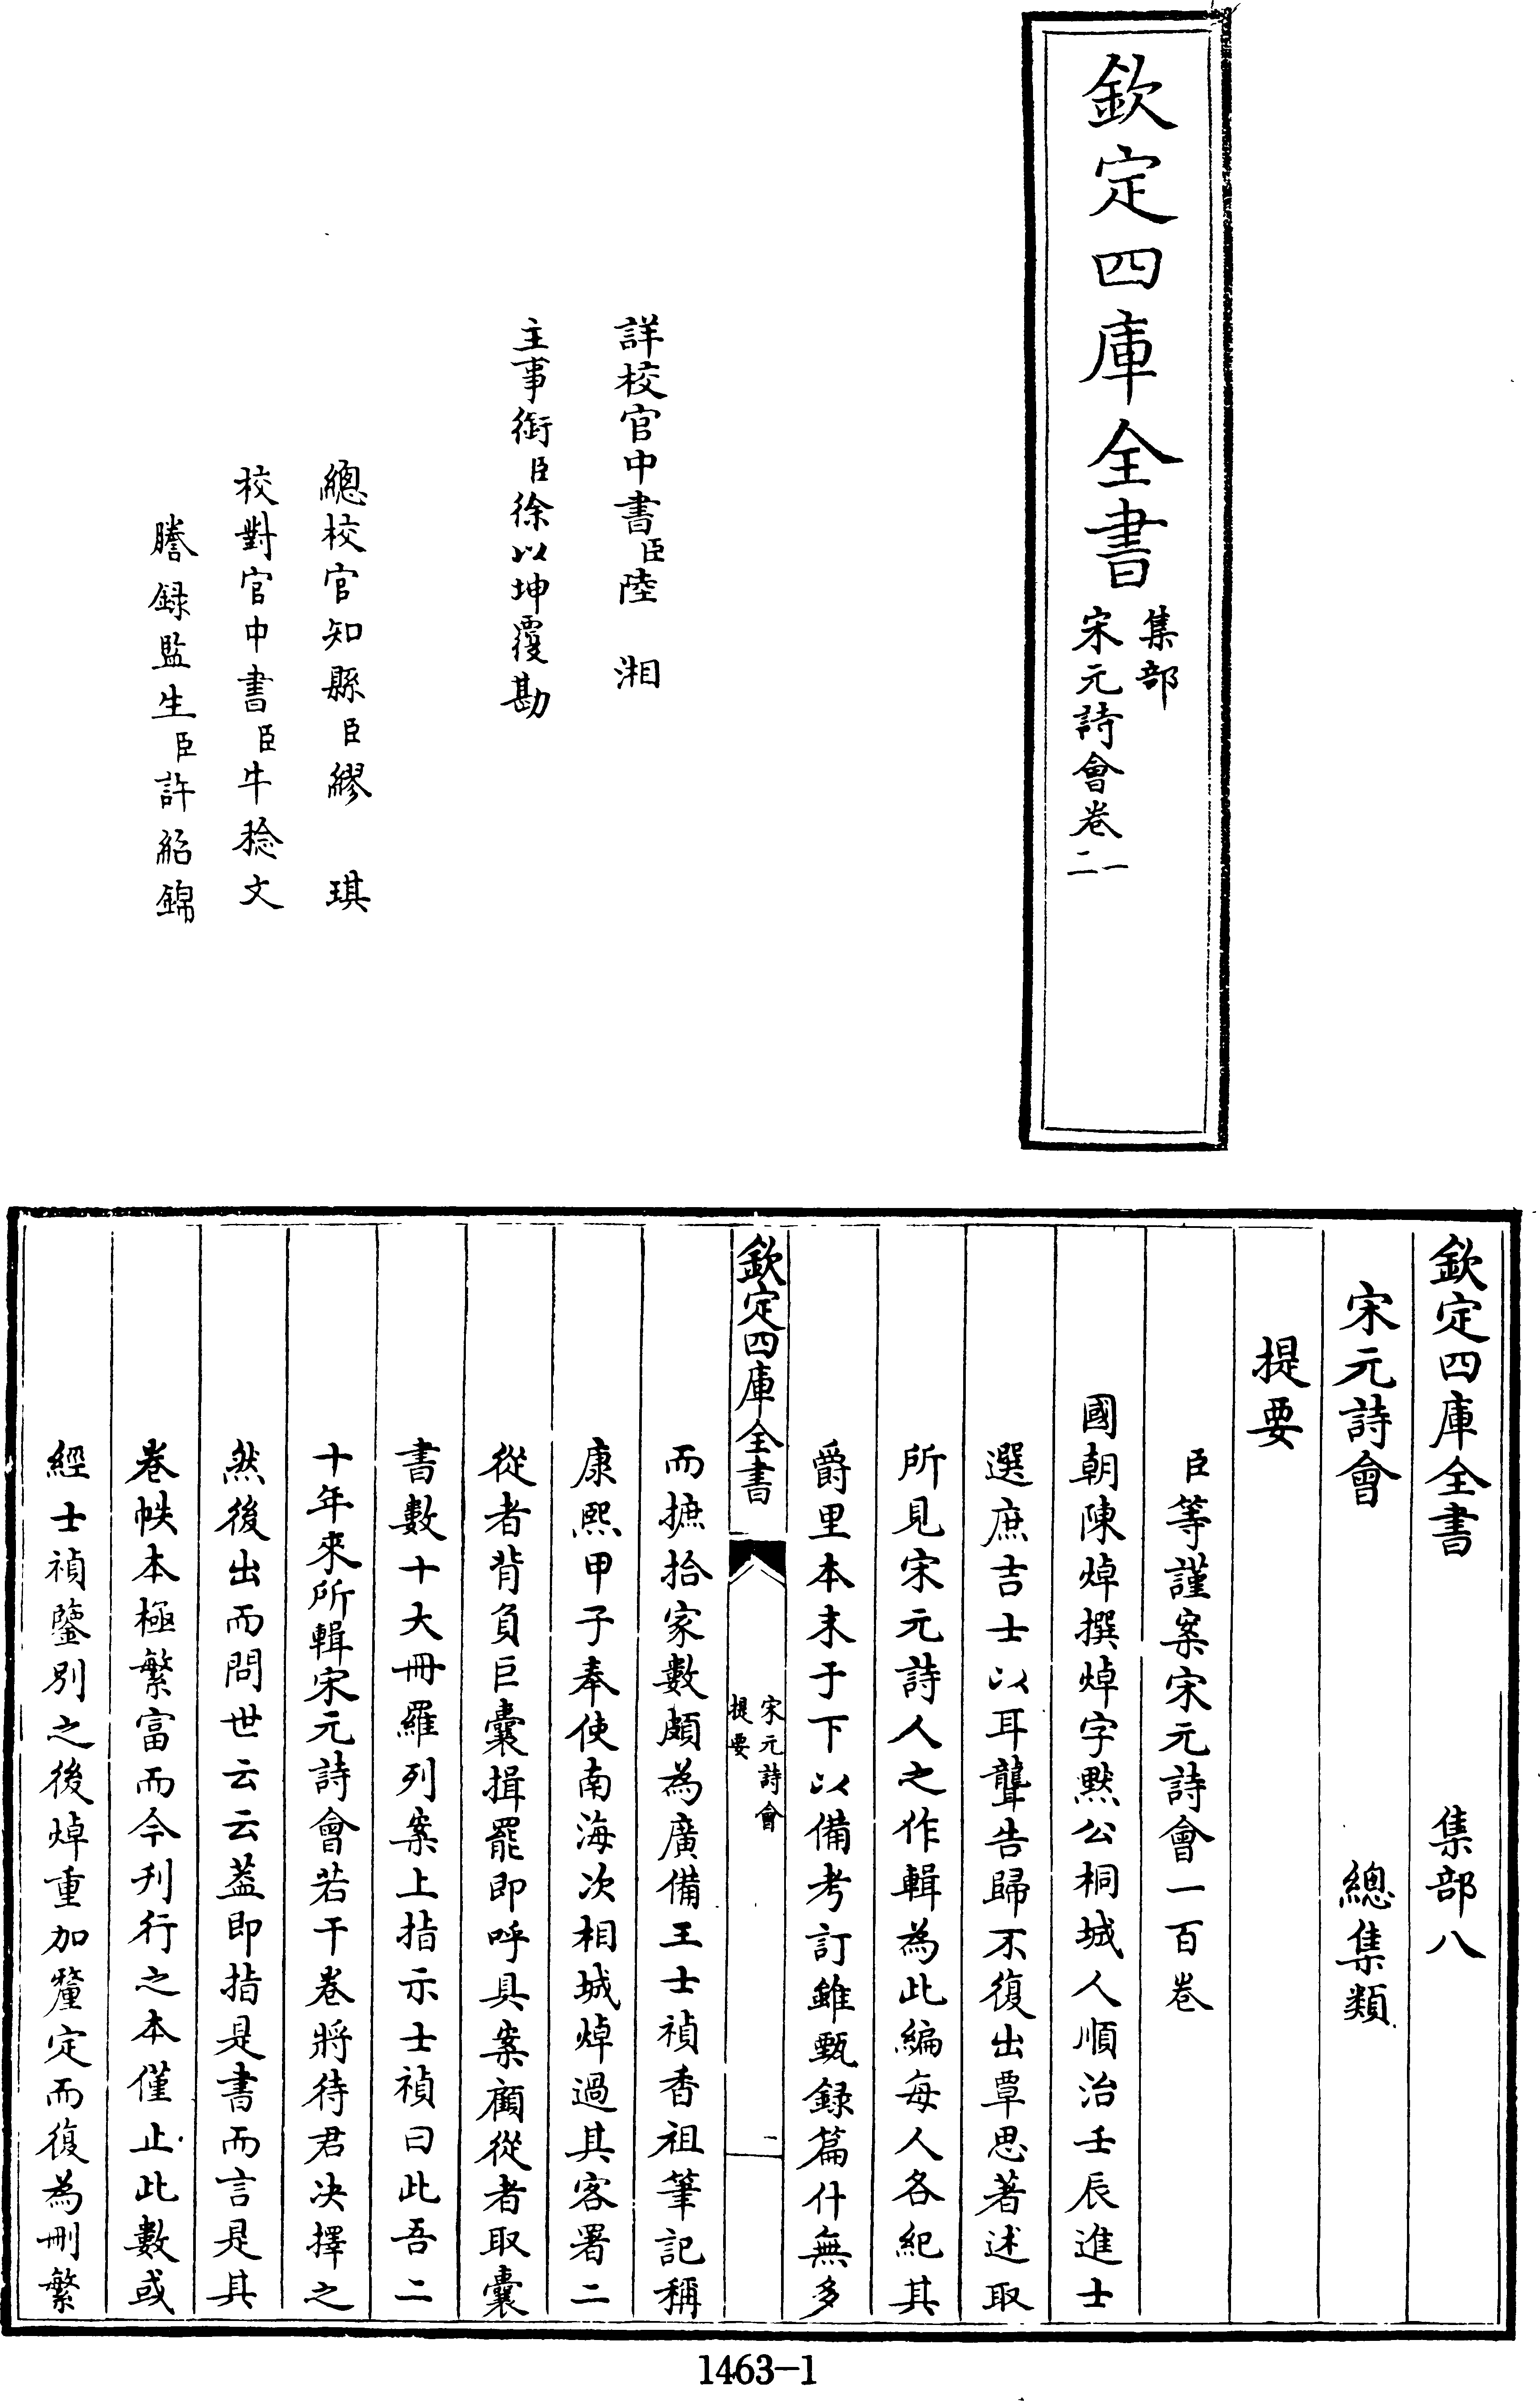 欽定四庫全書
集部
宋元詩會卷一
二
詳校官中書臣陸湘
主事銜臣徐以坤覆勘
總校官知縣臣繆琪
校對官中書臣牛稔文
謄録監生臣許紹錦
欽定四庫全書 集部八
宋元詩會 總集類
提要
臣等謹案宋元詩會一百卷
國朝陳焯撰焯字黙公桐城人順治壬辰進士
選庶吉士以耳聾告歸不復出覃思著述取
所見宋元詩人之作輯為此編每人各紀其
爵里本末于下以備考訂雖甄録篇什無多
欽定四庫全書
宋元詩會
提要
一
而摭拾家數頗為廣備王士禎香祖筆記稱
康熙甲子奉使南海次相城焯過其客署二
從者背負巨囊揖罷即呼具案顧從者取囊
書數十大冊羅列案上指示士禎曰此吾二
十年來所輯宋元詩會若干卷將待君决擇之
然後出而問世云云葢即指是書而言是其
卷帙本極繁富而今刋行之本僅止此數或
經士禎鑒別之後焯重加釐定而復為刪繁
1463-1